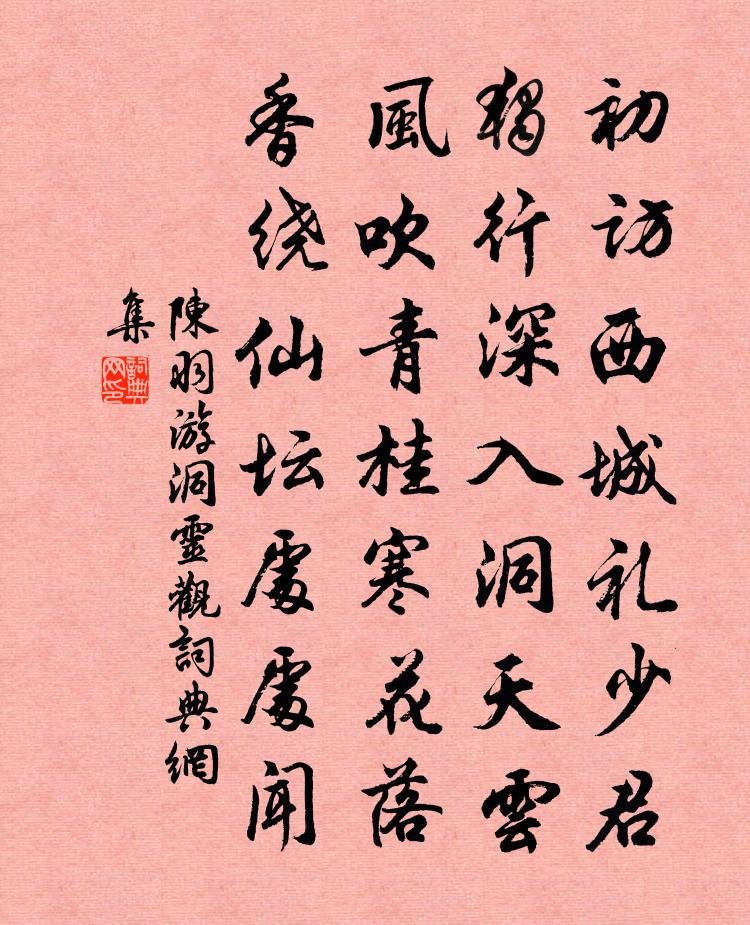 初访西城礼少君
獨行深入洞天雲
風吹青桂寒花落
香绕仙坛處處闻
陳羽游洞靈觀詞典網
集
詞典网印